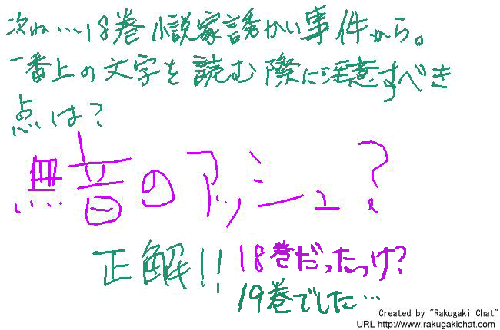 次ね…18巻小説家誘かい事件から。
一番上の文字を読む際に注意すべき
点は？
無音のアッシュ？
正解!!
18巻だったっけ?
19巻でした…
Created by "Rakugaki Chat"
URL:http://www.rakugakichat.com